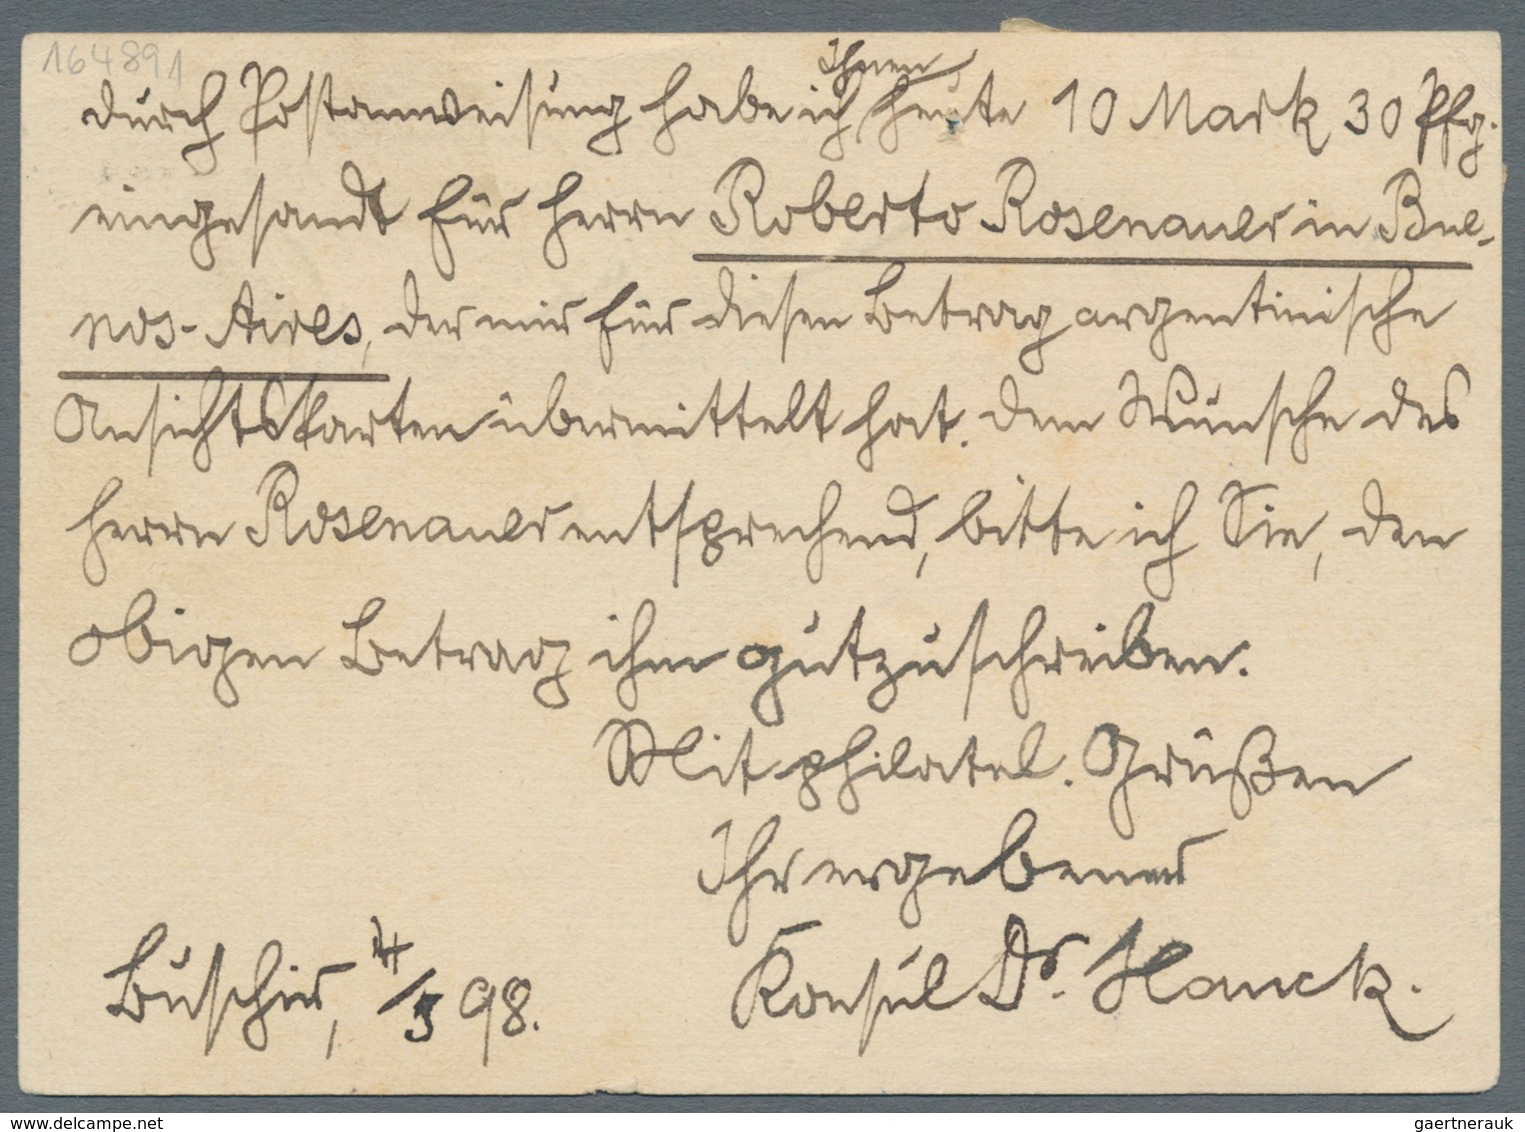 164891
Ihnen
durch Postanweisung habe ich heute 10 Mark 30 Pfg.
eingesandt für Herrn Roberto Rosenauer in Bue-
nos-Aires, der mir für diesen Betrag argentinische
Ansichtskarten übermittelt hat. Dem Wunsche des
Herrn Rosenauer entsprechend, bitte ich Sie, den
obigen Betrag ihm gutzuschreiben.
Mit philatel. Grüßen
Ihr ergebener
Buschir, /5 98. Konsul Dr. Hanck.
gaertnerauk@delcampe.net